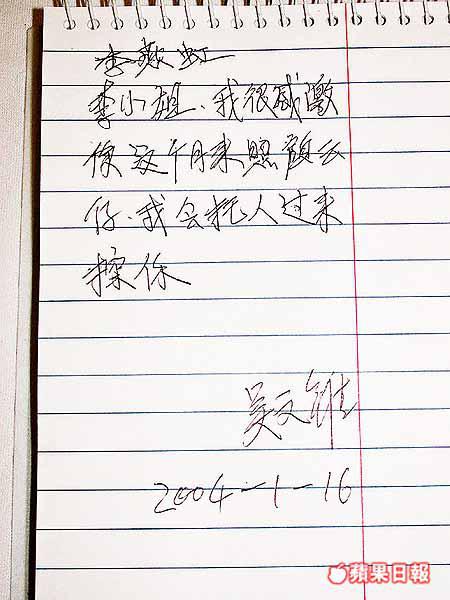 李燕虹
李小姐、我很感激
你这个月来照顧公
仔、我会托人过来
你
吴文
2004-1-16
蘋果日報